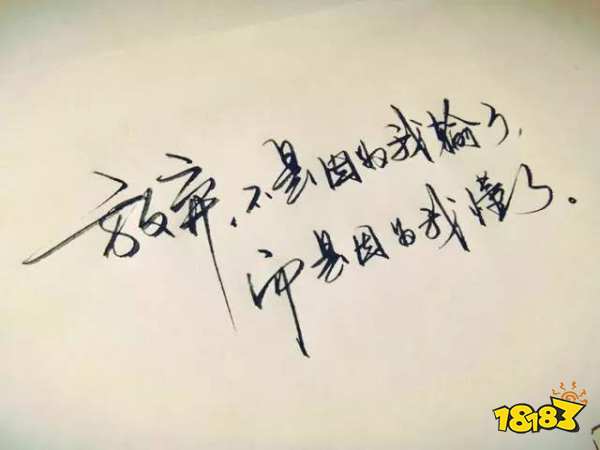 放弃、不是因为我输了,
而是因为我懂了。
18183